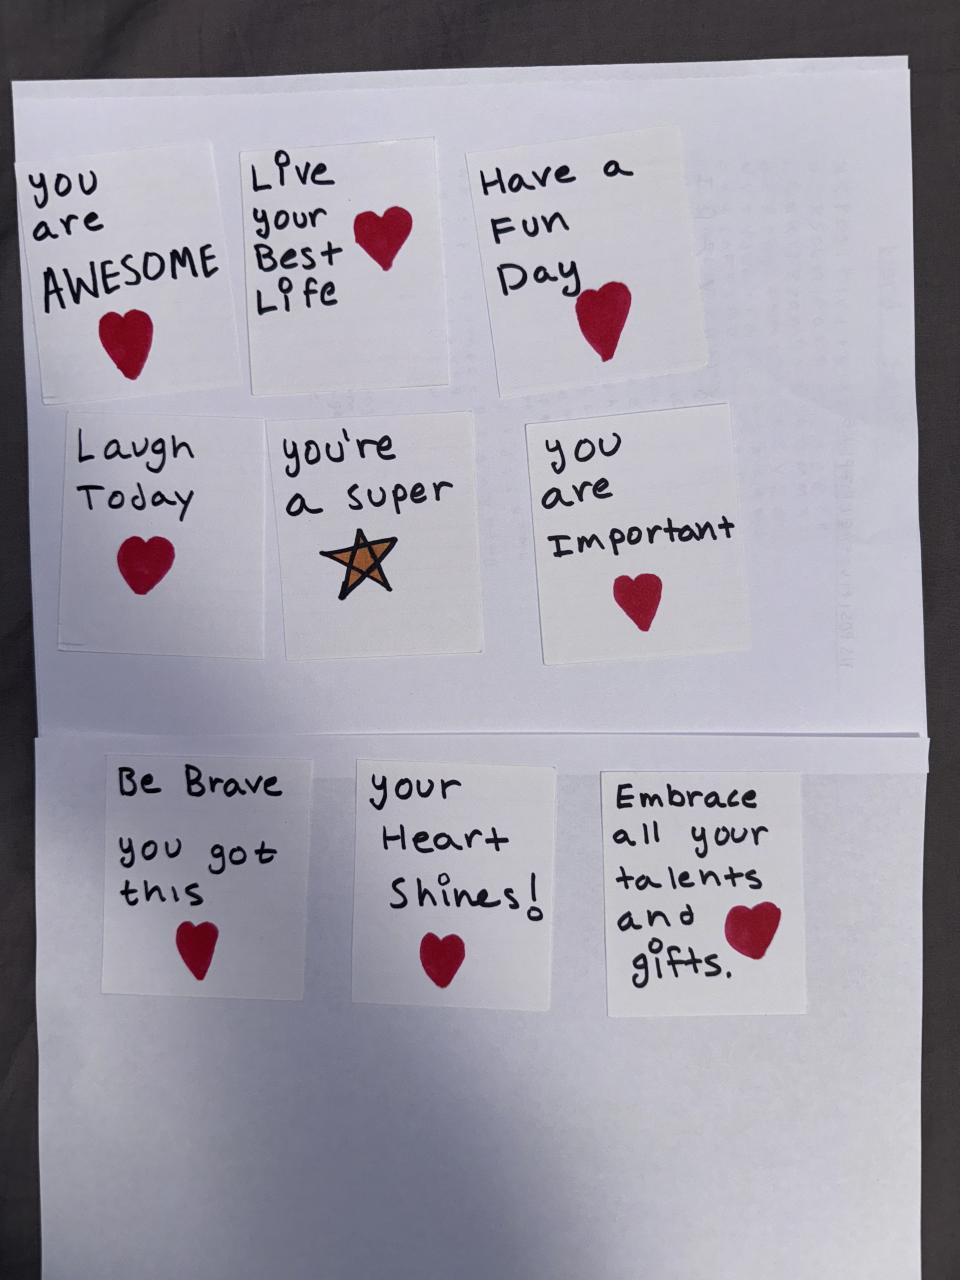 you
are
AWESOME
Live
your
Best
Life
Have a
Fun
Day
Laugh
Today
you're
a super
you
are
Important
Be Brave
you got
this
your
Heart
Shines!
Embrace
all your
talents
and
gifts.